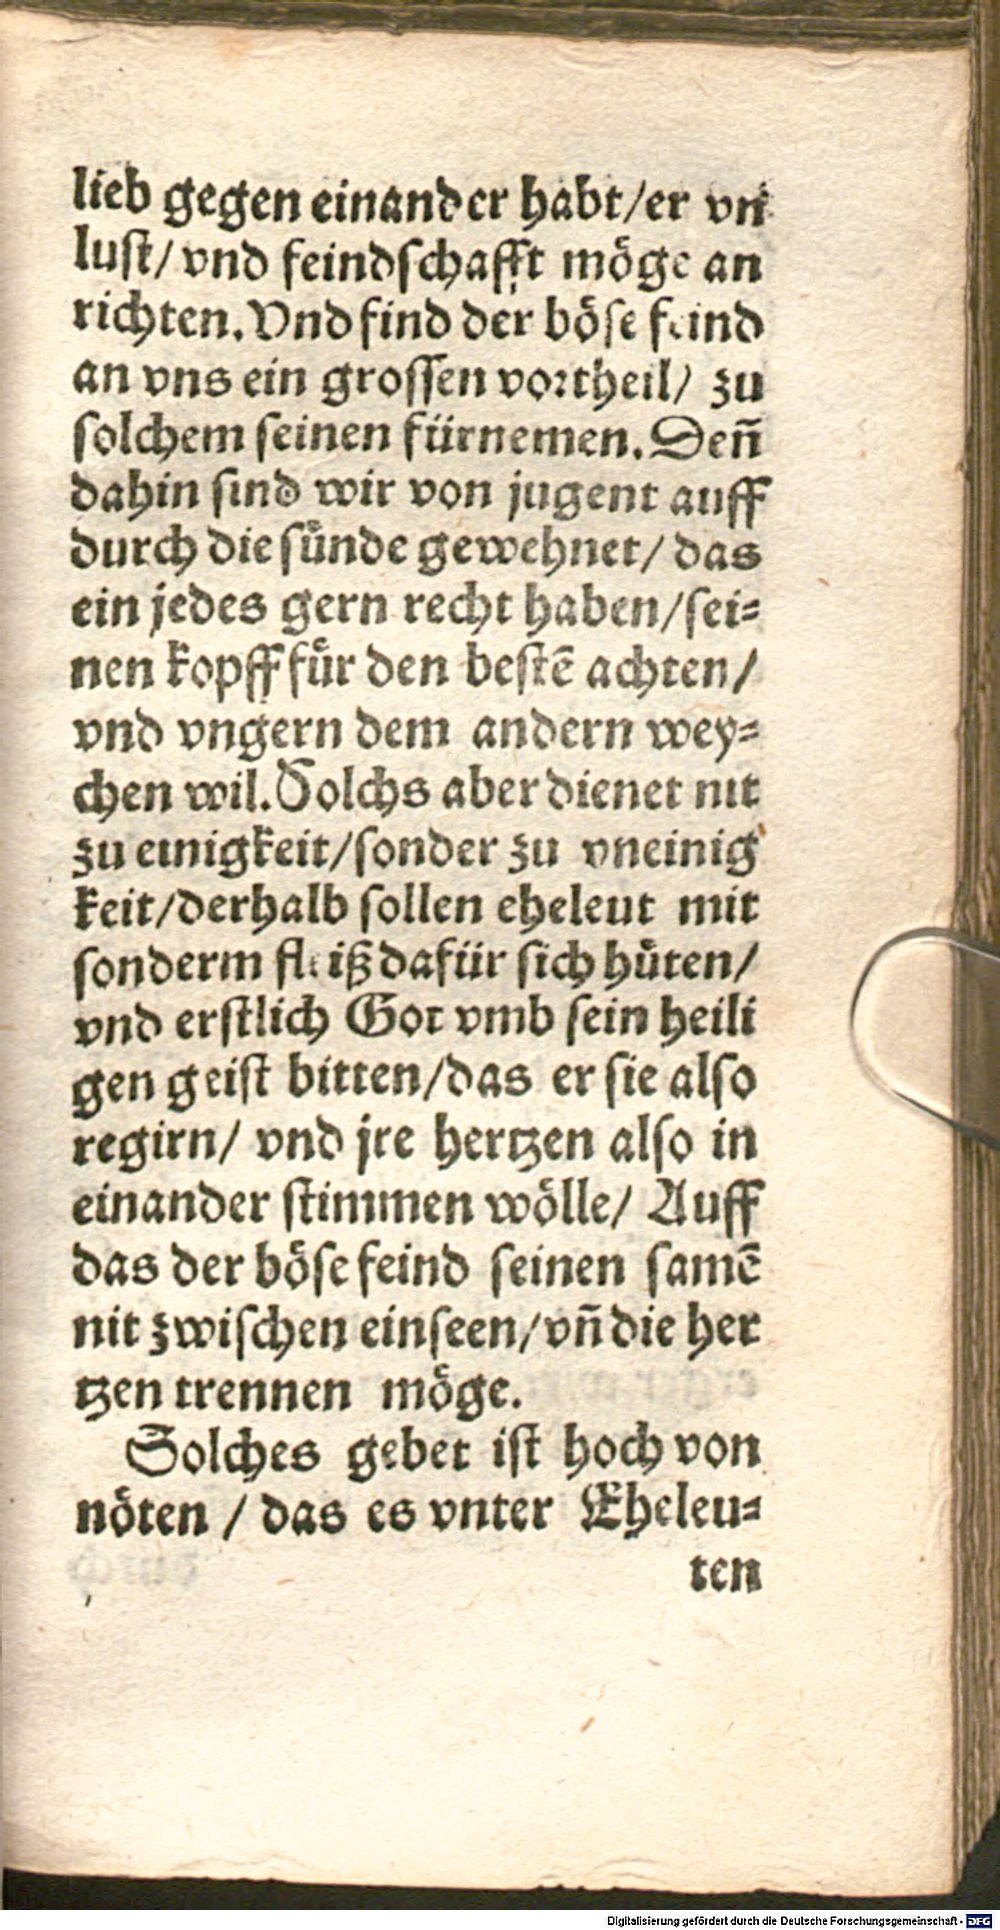 lieb gegen einander habt/er vn
lust/ vnd feindschafft möge an
richten. Vnd find der böse feind
an vns ein grossen vortheil/ zu
solchem seinen fürnemen. Deñ
dahin sind wir von jugent auff
durch die sünde gewehnet/ das
ein jedes gern recht haben/sei=
nen kopff für den bestē achten/
vnd vngern dem andern wey=
chen wil. Solchs aber dienet nit
zu einigkeit/sonder zu vneinig
keit/derhalb sollen eheleut mit
sonderm fleiß dafür sich hüten/
vnd erstlich Got vmb sein heili
gen geist bitten/das er sie also
regirn/ vnd jre hertzen also in
einander stimmen wölle/ Auff
das der böse feind seinen samē
nit zwischen einseen/vñ die her
tzen trennen möge.
Solches gebet ist hoch von
nöten / das es vnter Eheleu=
ten
Digitalisierung gefördert durch die Deutsche Forschungsgemeinschaft - DFG